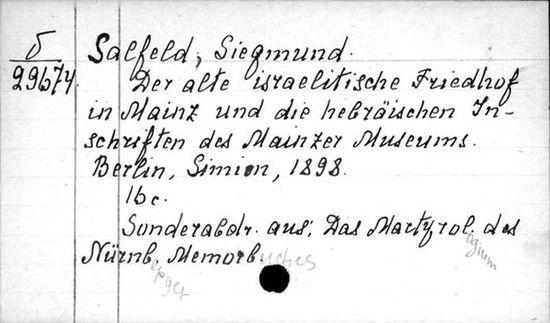 δ
29674.
Salfeld, Siegmund.
Der alte israelitische Friedhof
in Mainz und die hebräischen In-
schriften des Mainzer Museums.
Berlin, Simion, 1898.
16 c.
Sonderabdr. aus: Das Martyrologium des
Nürnberger Memorbuches